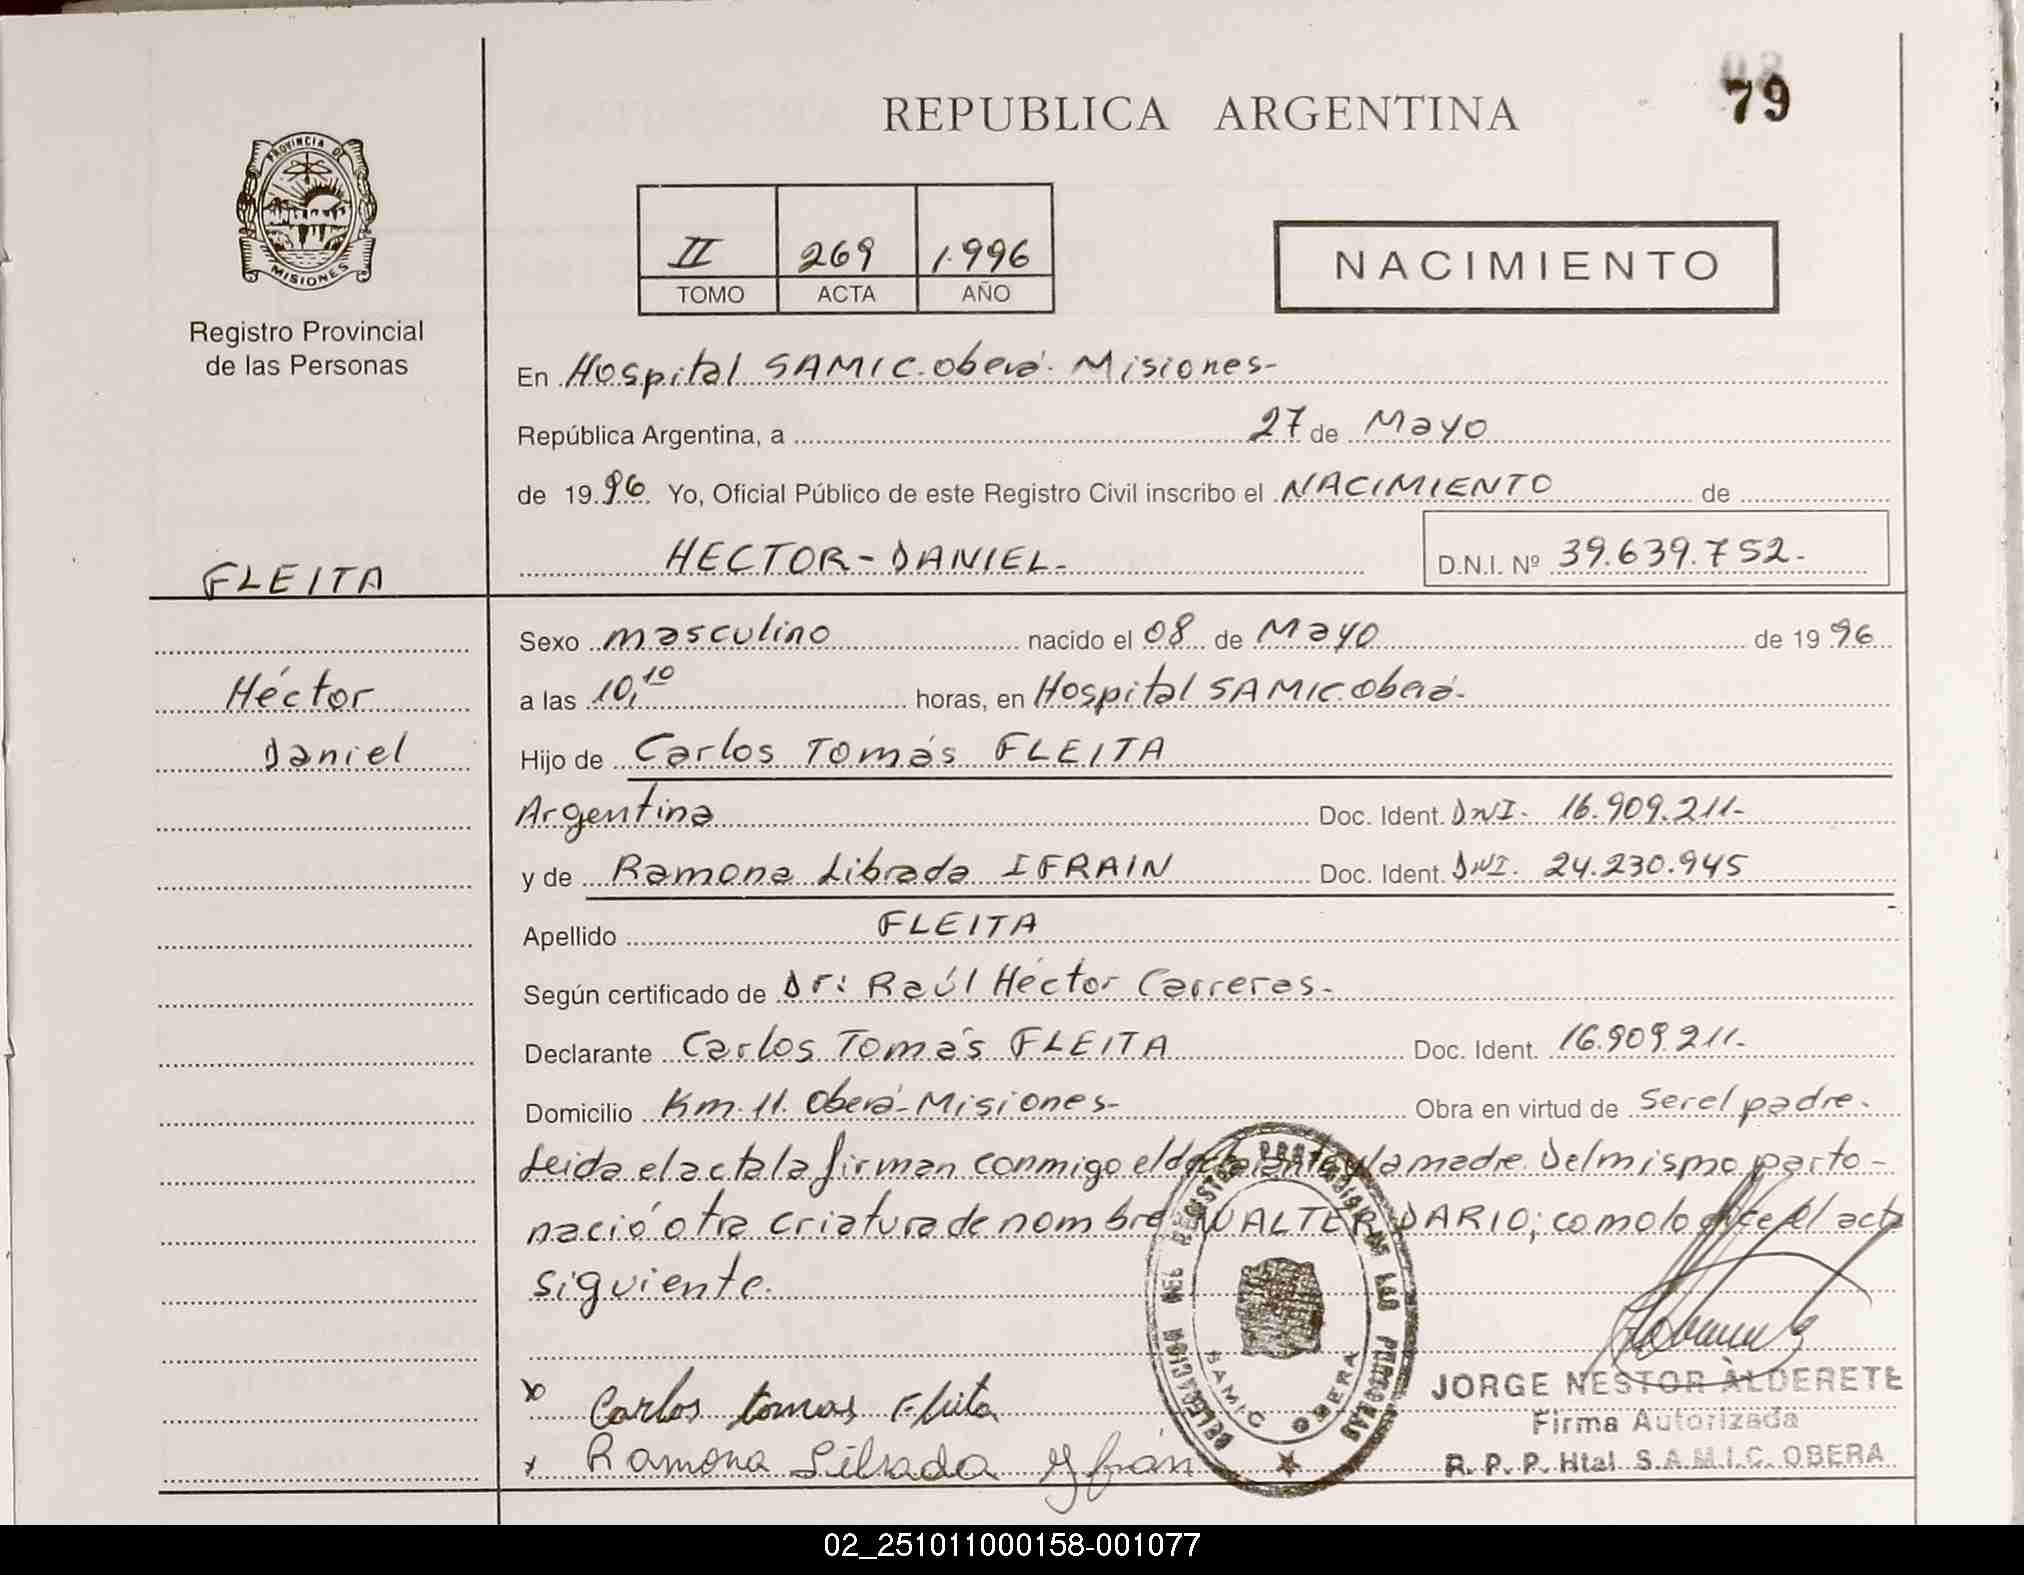 79
REPUBLICA ARGENTINA
PROVINCIA DE
MISIONES
Registro Provincial
de las Personas
II 269 1.996
TOMO ACTA AÑO
NACIMIENTO
En Hospital SAMIC. Oberá. Misiones-
República Argentina, a 27 de Mayo
de 1996 Yo, Oficial Público de este Registro Civil inscribo el NACIMIENTO de
FLEITA
HECTOR-DANIEL- D.N.I. Nº 39.639.752-
Sexo masculino nacido el 08 de Mayo de 1996
Héctor
a las 10,10 horas, en Hospital SAMIC. Oberá-
Daniel
Hijo de Carlos Tomás FLEITA
Argentina Doc. Ident. DNI. 16.909.211-
y de Ramona Librada IFRAIN Doc. Ident. DNI. 24.230.945
Apellido FLEITA
Según certificado de Dr: Raúl Héctor Carreras-
Declarante Carlos Tomás FLEITA Doc. Ident. 16.909.211-
Domicilio Km. 11. Oberá-Misiones- Obra en virtud de ser el padre.
Leida el acta la firman conmigo el declarante y la madre. Del mismo parto-
nació otra criatura de nombre WALTER DARIO; como lo dice el acta
siguiente.
DELEGACION DEL REGISTRO PROVINCIAL DE LAS PERSONAS
SAMIC OBERA
x Carlos tomas Fleita
x Ramona Librada Yfrán
JORGE NESTOR ALDERETE
Firma Autorizada
R. P. P. Htal. S.A.M.I.C. OBERA
02_251011000158-001077